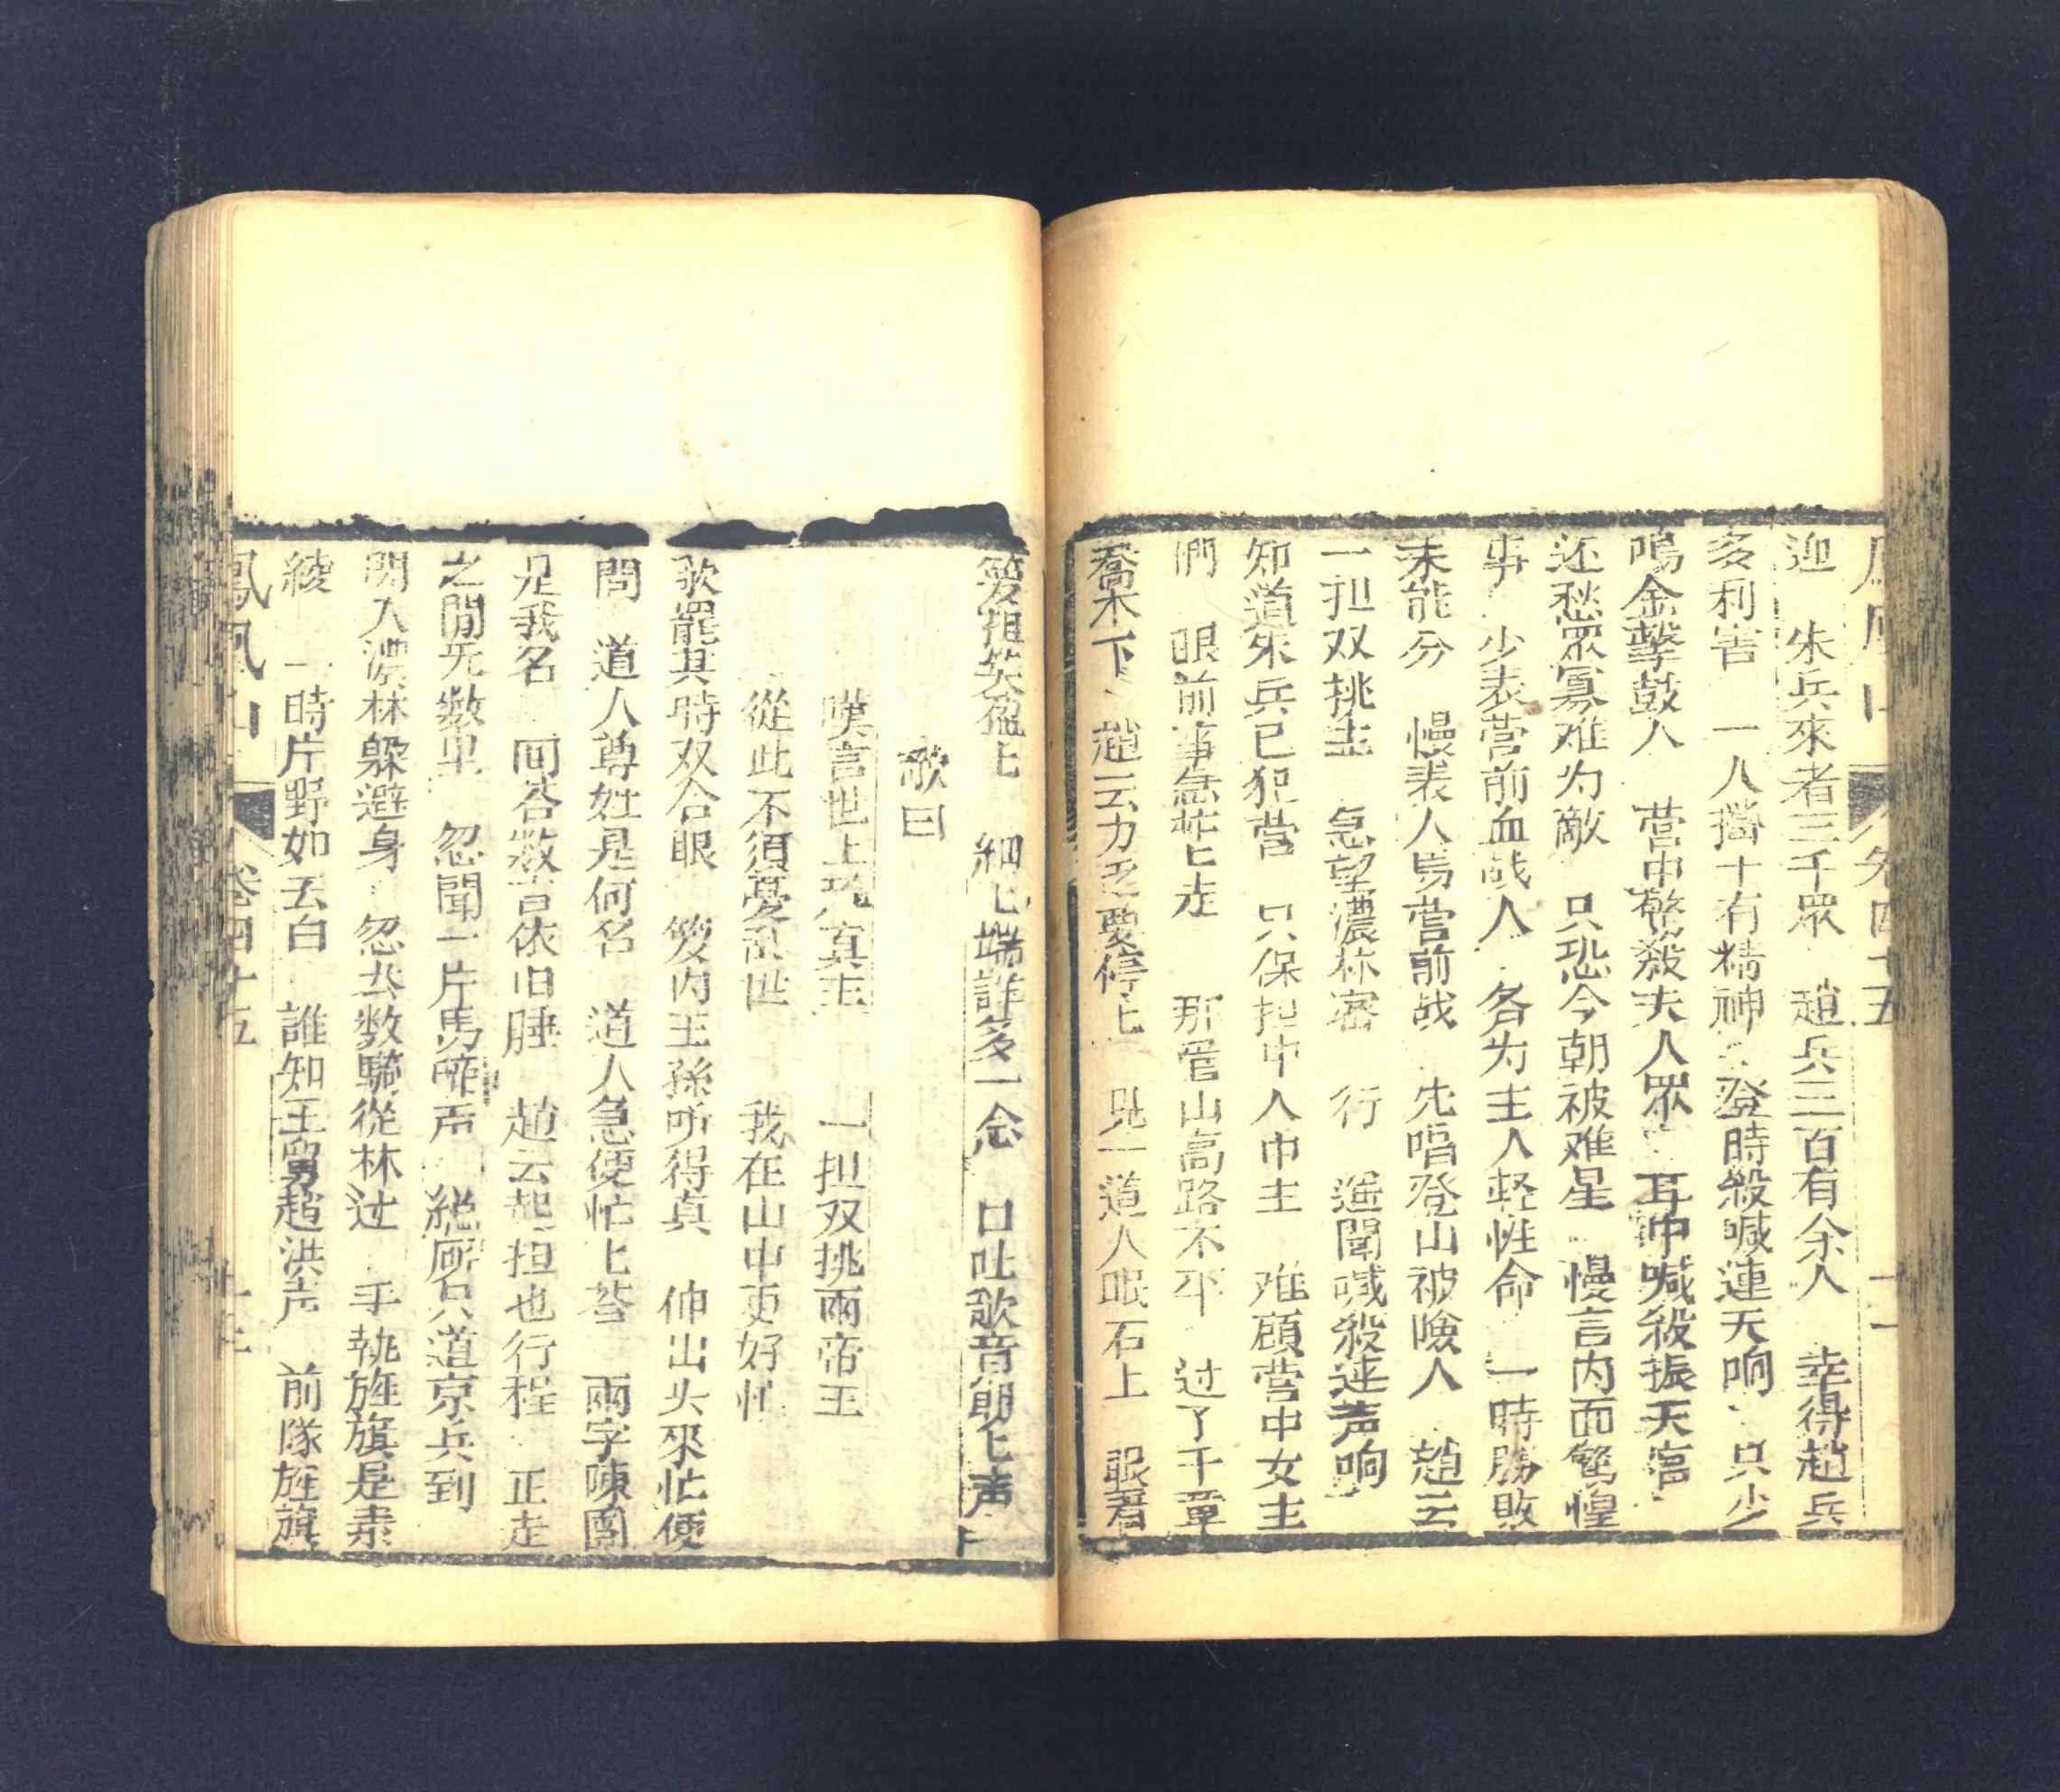 迎 朱兵來者三千眾 趙兵三百有余人 幸得趙兵
多利害 一人擋十有精神 登時殺喊連天响 只少
鳴金擊鼓人 营中驚殺夫人眾 耳中喊殺振天宫
还愁眾寡难为敵 只恐今朝被难星 慢言内面驚惶
事 少表营前血战人 各为主人轻性命 一時勝敗
未能分 慢表人馬营前战 先唱登山被險人 趙云
一担双挑主 急望濃林密 行 遥聞喊殺连声响
知道朱兵已犯营 只保担中人巾主 难顧营中女主
們 眼前事急忙匕走 那管山高路不平 过了千章
喬木下 趙云力乏要停匕 見一道人眠石上 眼看
籮担笑盈匕 細匕端詳多一念 口吐歌音朗匕声
歌曰
嘆言世上 真主 一担双挑兩帝王
從此不須憂乱世 我在山中更好忙
歌罷其時双合眼 籮内王孫听得真 伸出头來忙便
問 道人尊姓是何名 道人急便忙匕答 兩字陳團
是我名 回答数言依旧睡 趙云起担也行程 正走
之間无数里 忽聞一片馬啼声 絕 只道京兵到
閃入濃林躲避身 忽 数騎從林过 手執旌旗是素
綾 一時片野如云白 誰知王舅趙洪声 前隊旌旗
鳳凰山 卷四十五